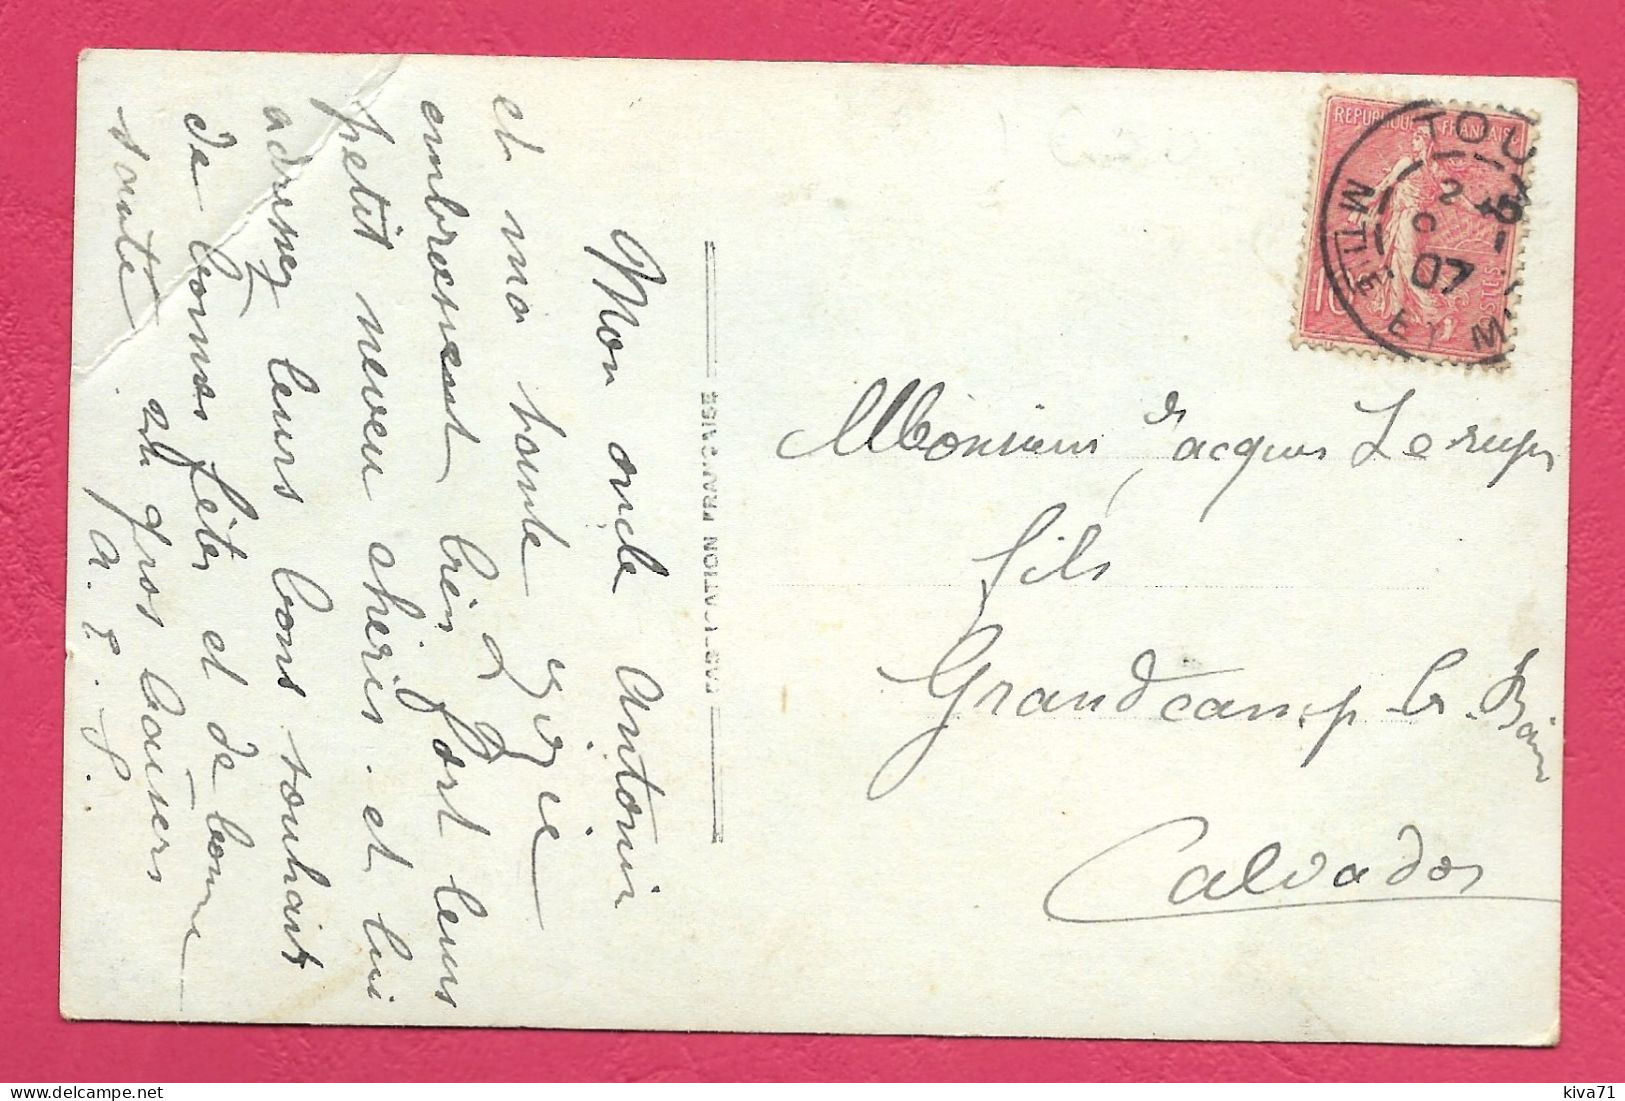 Mon oncle Antonin
et ma tante Zizie
embrassent bien fort leurs
petit neveu cheries. et lui
adressez leurs bons souhait
de bonnes fêtes et de bonne
sante et gros baisers
A. P. P.
CARTE POSTALE FRANÇAISE
REPUBLIQUE FRANÇAISE
10
POSTES
TOU
2
07
ET M
Monsieur Jacques Lerupz
fils
Grandcamp les Bains
Calvados
kiva71